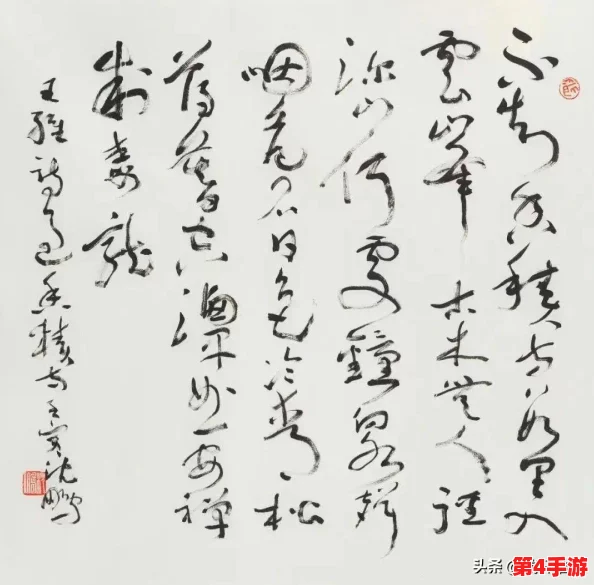 不知香積寺數里入
雲峯古木無人徑
深山何處鐘泉聲
咽危石日色冷青松
薄暮空潭曲安禪
制毒龍
王維詩過香積寺 壬寅沈鵬
头条
第4手游